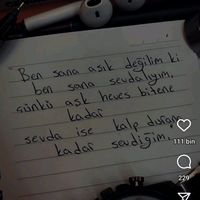 Ben sana aşık değilim ki
ben sana sevdalıyım,
çünkü aşk heves bitene
kadar
sevda ise kalp durana
kadar sevdiğim.
111 bin
229